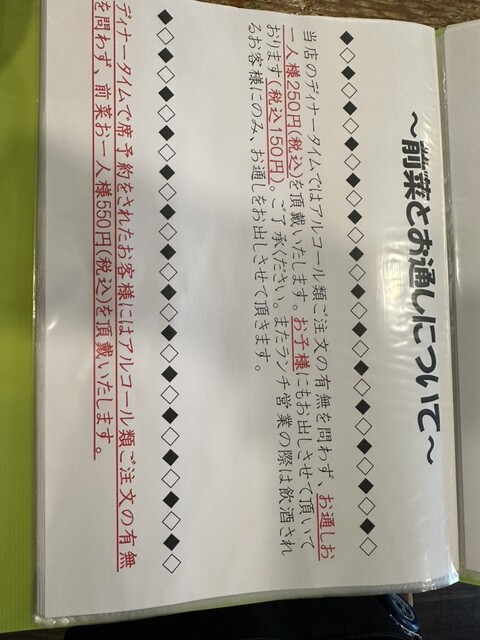 ～前菜とお通しについて～
◆◇◆◇◆◇◆◇◆◇◆◇◆◇◆◇◆◇◆◇◆◇◆◇◆◇
当店のディナータイムではアルコール類ご注文の有無を問わず、お通しお
一人様250円(税込)を頂戴いたします。お子様にもお出しさせて頂いて
おります(税込150円)。ご了承ください。またランチ営業の際は飲酒され
るお客様にのみ、お通しをお出しさせて頂きます。
◆◇◆◇◆◇◆◇◆◇◆◇◆◇◆◇◆◇◆◇◆◇◆◇◆◇
ディナータイムで席予約をされたお客様にはアルコール類ご注文の有無
を問わず、前菜お一人様550円(税込)を頂戴いたします。